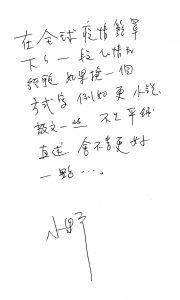 在全球疫情籠罩
下的一段心情和
經驗 如果換一個
方式寫 例如更小說、
散文一些 不是平鋪
直述 會不會更好
一點…。
小野